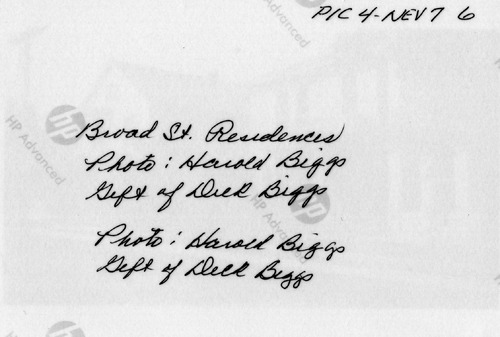 PIC 4-NEV7 6
HP Advanced
Broad St. Residences
Photo: Harold Biggs
Gift of Dick Biggs
Photo: Harold Biggs
Gift of Dick Biggs
HP Advanced
HP Advanced